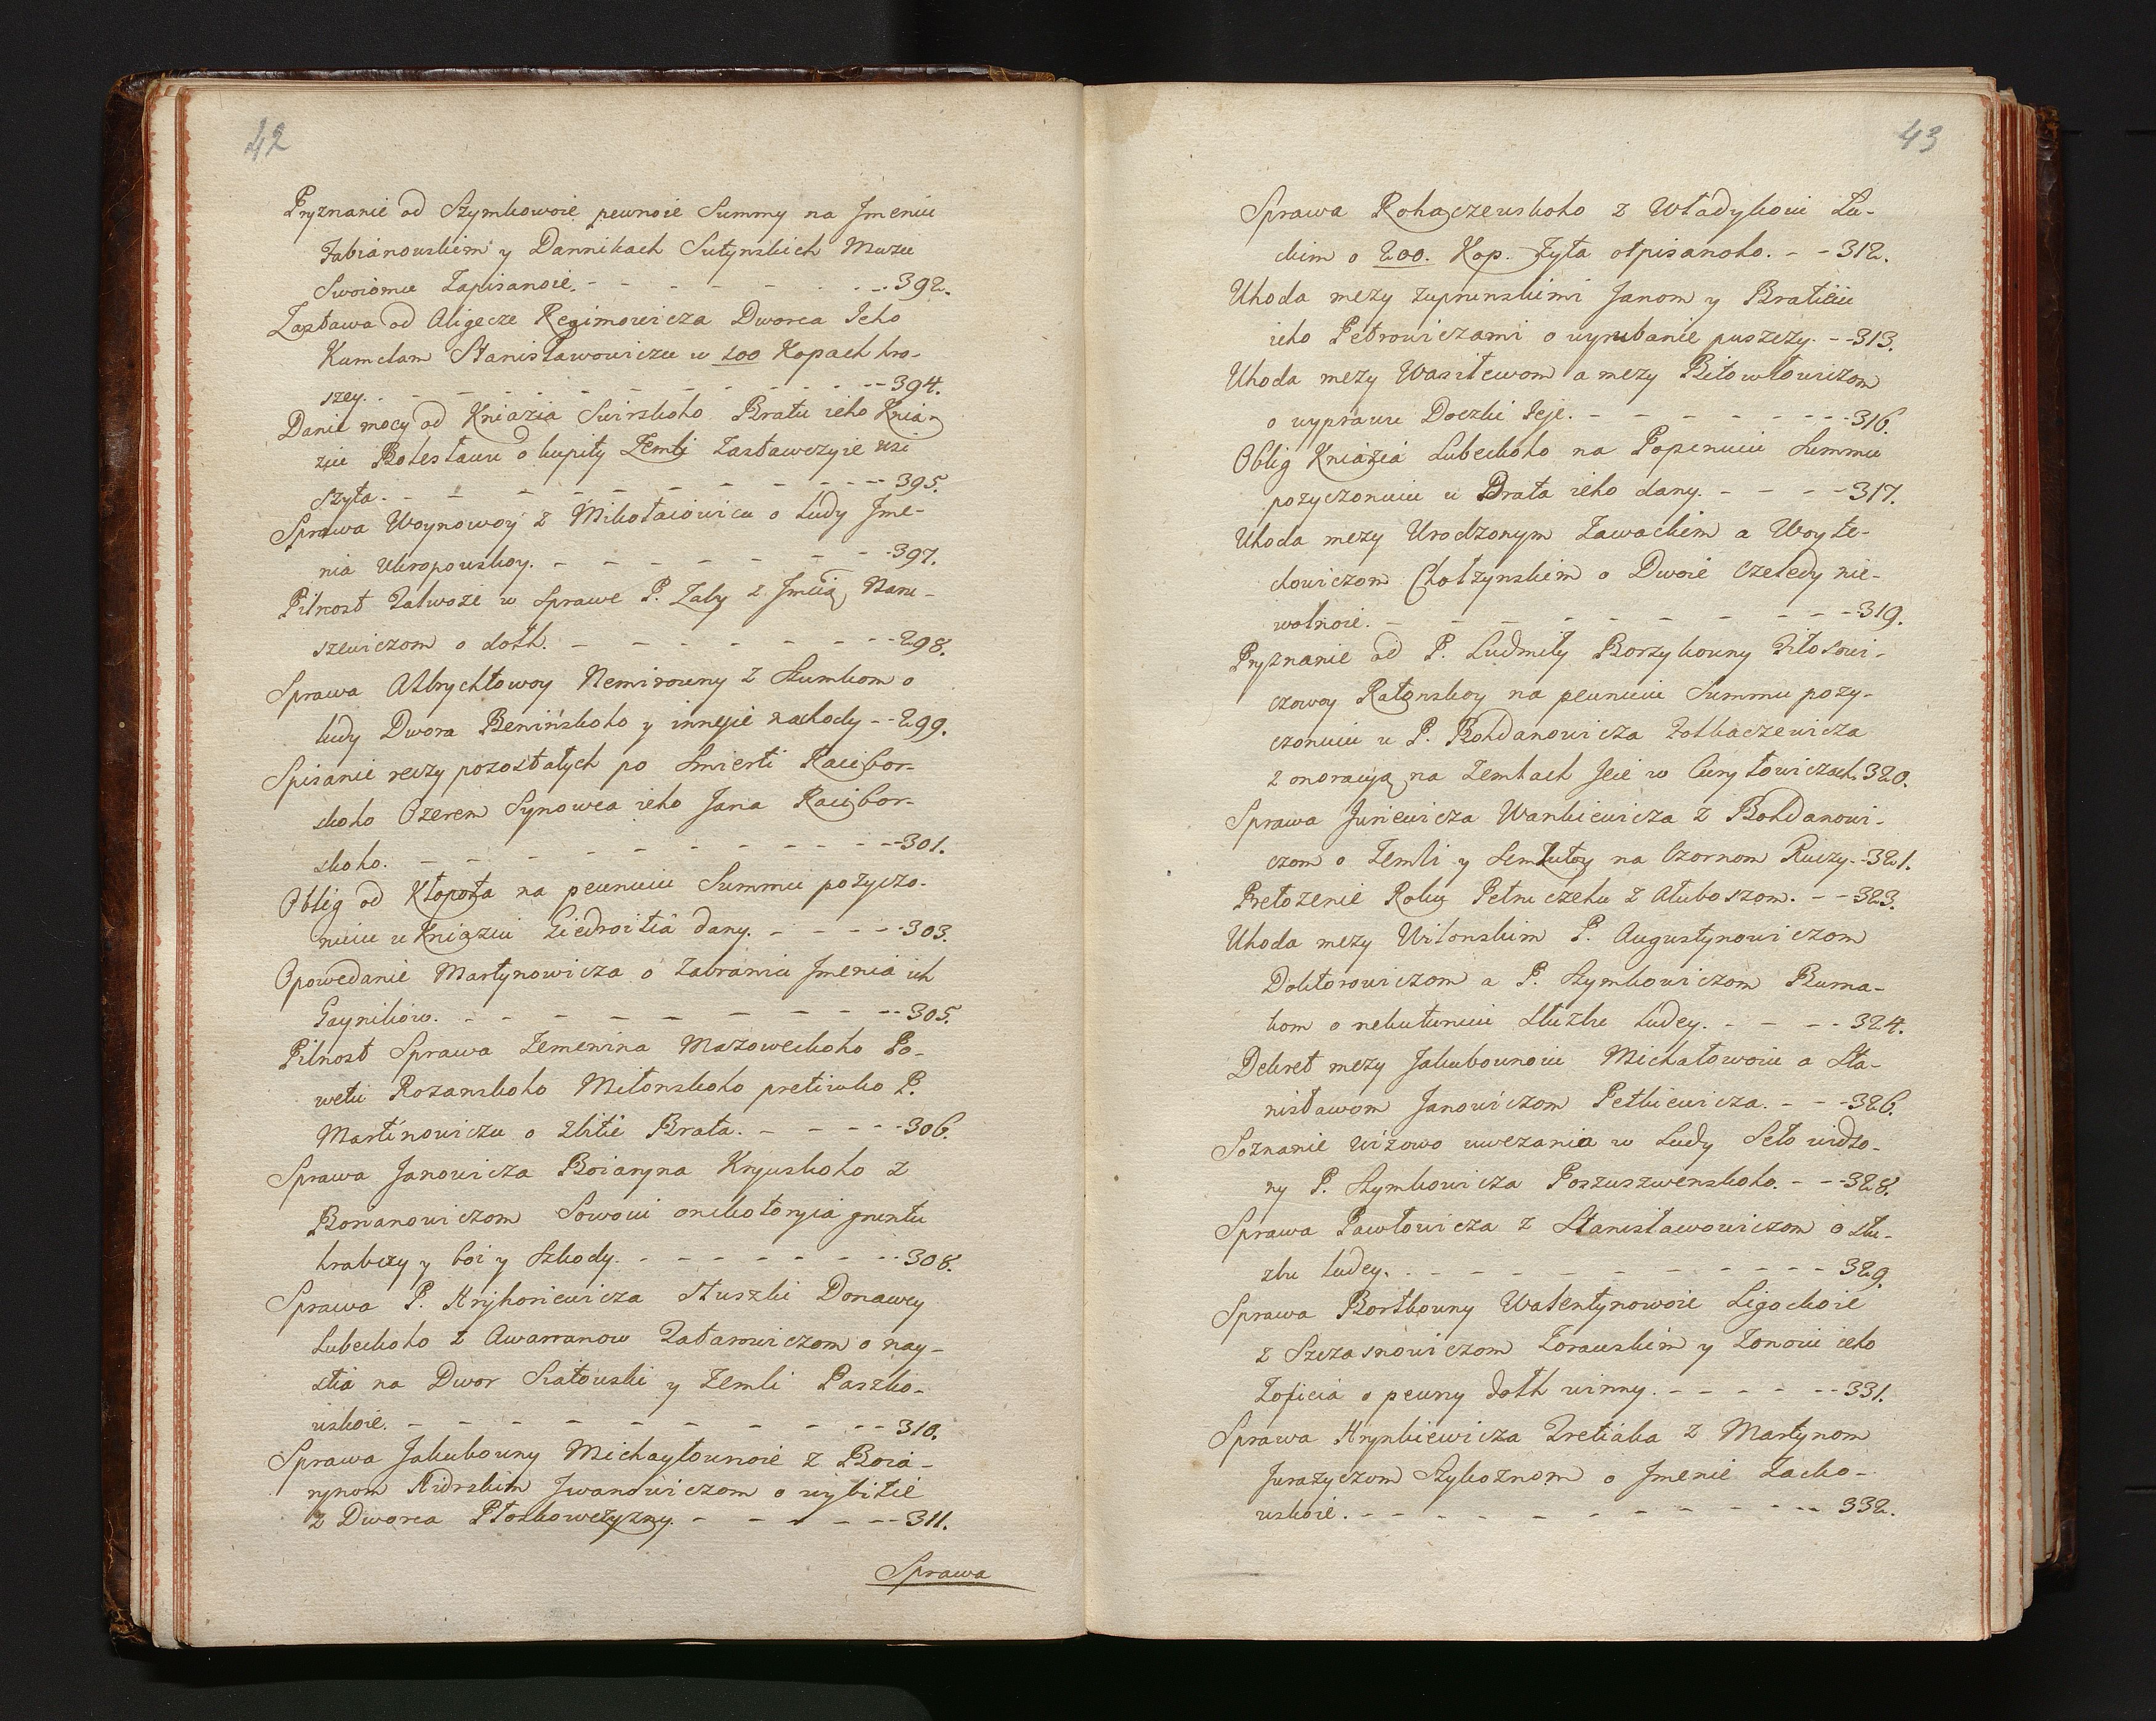 42
Pryznanie od Szymkowoie pewnoie Summy na Jmeniu
Fabianowskiem y Dannikach Sutynskich Mużu
Swoiomu Zapisanoie. - - - - - - - 392.
Zastawa od Aligecze Regimowicza Dworca Jeho
Kumelam Stanisławowiczu w 100 Kopach hro-
szey. - - - - - - - - - - 394.
Danie mocy od Kniazia Swirskoho Bratu ieho Knia-
ziu Bolesławu o kupiły Zemli Zastawczyie uszi
szyta. - - - - - - - - - - 395.
Sprawa Woynowoy z Mikołaiowicu o Ludy Jme-
nia Ukropowskoy. - - - - - - - 397.
Pilnost Zalwoze w Sprawe P. Zaby z Jmcią Naru-
szewiczom o dolh. - - - - - - - 298.
Sprawa Olbrychtowoy Nemirowny z Stumkom o
ludy Dwora Benińskoho y innyie nachody - - 299.
Spisanie reczy pozostałych po Smierti Racibor-
skoho Ozerem Synowca ieho Jana Racibor-
skoho. - - - - - - - - - - 301.
Oblig od Kłopota na pewnuiu Summu pożyczo-
nuiu u Kniaziu Giedroitia dany. - - - - 303.
Opowedanie Martynowicza o zabraniu Jmenia ich
Gaynikow. - - - - - - - - - 305.
Pilnost Sprawa Zemenina Mazoweckoho Po-
wetu Rozanskoho Milonskoho pretiwko P.
Martinowiczu o zbitie Brata. - - - - - 306.
Sprawa Janowicza Boiaryna Kryuskoho z
Romanowiczom Sowoiu onekotoryia gruntu
hrabezy y boi y szkody. - - - - - - - - 308.
Sprawa P. Hryhoriewicza Stuszki Donawey
Lubeckoho z Awarranow Zatarowiczom o nay-
stia na Dwor Siatowski y Zemli Paszko-
wskoie. - - - - - - - - - - 310.
Sprawa Jakubowny Michayłownoie z Boia-
rynom Kidrskim Jwanowiczom o wybitie
z Dworca Płoskowczyzny. - - - - - - 311.
Sprawa
43
Sprawa Rohaczewskoho z Władykoiu Lu-
ckim o 200. Kop. Żyta otpisanoho. - - 312.
Uhoda mezy Zuprunskimi Janom y Bratieiu
ieho Petrowiczami o wyrubanie puszczy. - - 313.
Uhoda mezy Wasilewom a mezy Biłowłowiczom
o wyprawu Doczki Jeje. - - - - - - - - 316.
Oblig Kniazia Lubeckoho na Popenuiu Summu
pozyczonuiu u Brata ieho dany. - - - - 317.
Uhoda mezy Urodzonym Zawackim a Woyte-
chowiczom Chołzynskim o Dwoie Czeledy nie-
wolnoie. - - - - - - - - - - 319.
Pryznanie od P. Ludmiły Borzykowny Piłosowi-
czowoy Ratonskoy na pewnuiu Summu pozy-
czonuiu u P. Bohdanowicza Zołkaczewicza
z onoracyą na Zemlach Jeie w Curyłowiczach. 320.
Sprawa Juriewicza Wankiewicza z Bohdanowi-
czom o Zemli y Semłutoy na Czornom Ruczy. - 321.
Prełozenie Roku Petruczeku z Hłuboszom. - - 323.
Uhoda mezy Wilonskim P. Augustynowiczom
Doktorowiczom a P. Szymkowiczom Ruma-
kom o nekuturuiu służbu ludey. - - - - 324.
Dekret mezy Jakubownoiu Michałowoiu a Sta-
nisławom Janowiczom Petkiewicza. - - - 326.
Soznanie wiżowo uwezania w Ludy Seło widzo-
ny P. Szymkowicza Poszuszwenskoho. - - - 328.
Sprawa Pawłowicza z Stanisławowiczom o słu-
zbu ludey. - - - - - - - - - - 329.
Sprawa Bortkowny Walentynowoie Ligockoie
z Szczasnowiczom Zorawskim y Zonoiu ieho
Zoficia o pewny dolh winny. - - - - - - 331.
Sprawa Hrynkiewicza Tretiaka z Martynom
Jurazyczom Szykoznom o Jmenie Lacko-
wskoie. - - - - - - - - - - 332.